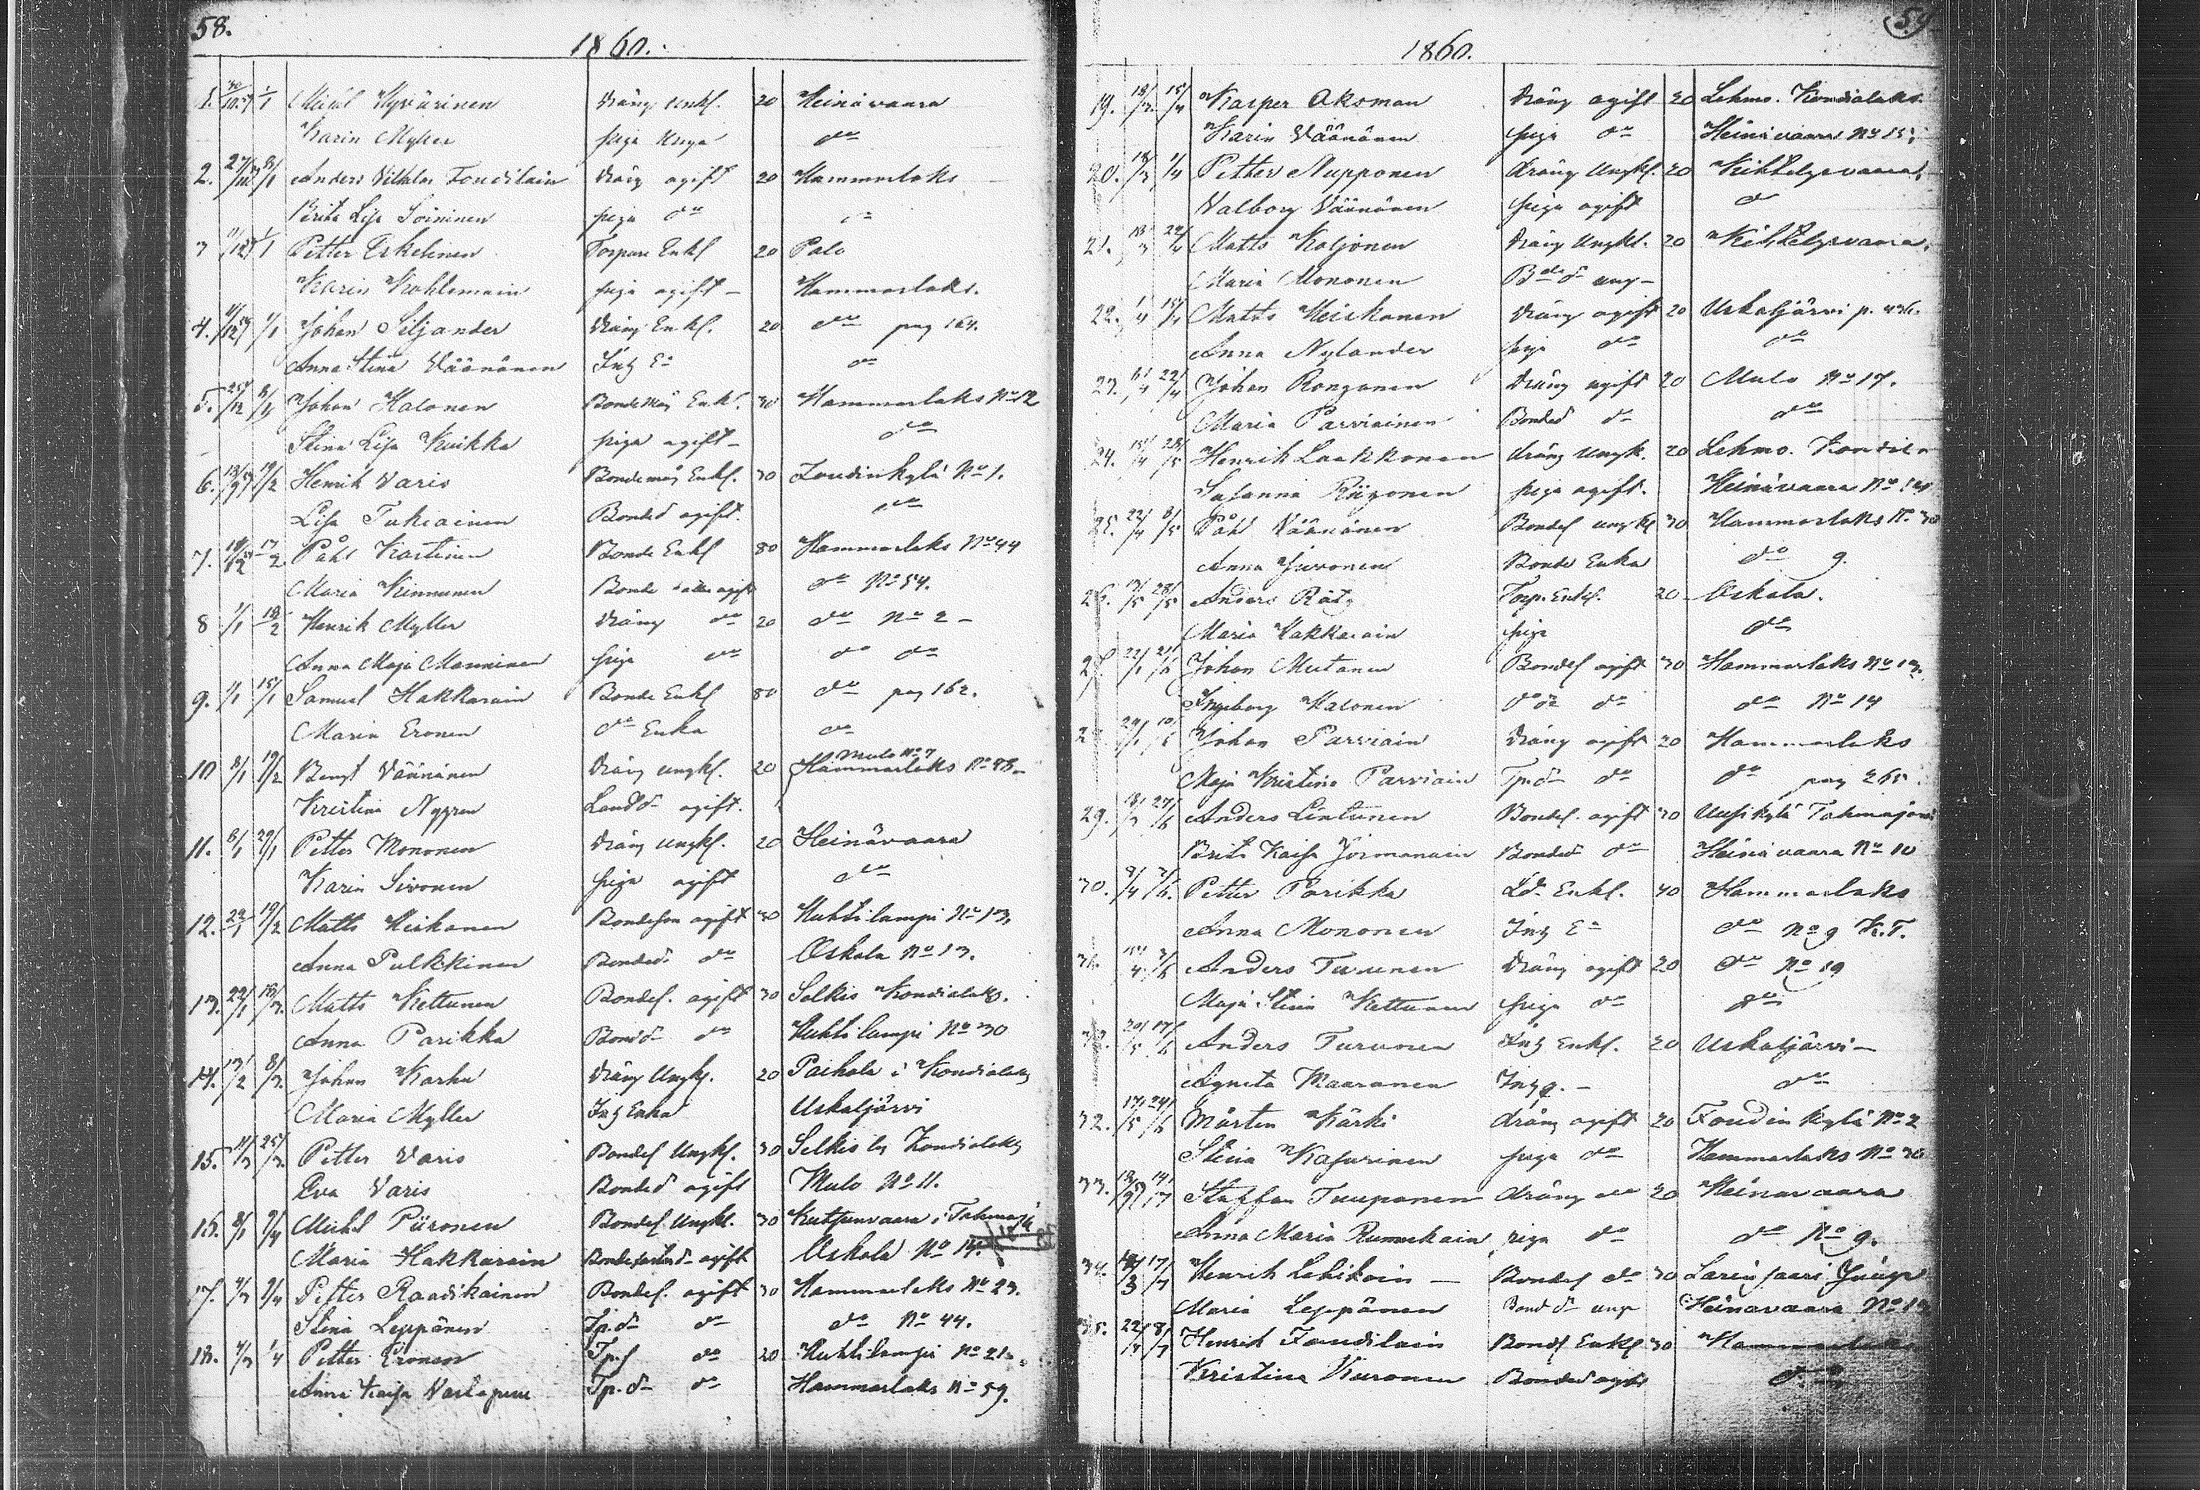 58.
1860.
1. 30/10 57 1/1 Michl Hyvärinen Dräng Unkl. 20 Heinävaara
Karin Myller piga Unga do
2. 27/12 8/1 Anders Vilhlm Toudilain dräng ogift 20 Hammaslaks
Brita Lisa Soininen piga do do
3 1/1 Petter Eskelinen Torpare Enkl 20 Palo
Karin Kohlemain piga ogift – Hammaslaks.
4. 1/1 Johan Siljander Dräng Enkl. 20 do pag 164.
Anna Stina Väänänen Inh Ea do
5. 25/12 8/1 Johan Halonen Bondemåg Enkl. 30 Hammaslaks No 12
Stina Lisa Kuikka piga ogift – do
6. 19/2 Henrik Varis Bondemåg Enkl. 30 Joudinkylä No 1.
Lisa Tukiainen Bonded ogift. do
7. 17/2 Påhl Karttinen Bonde Enkl 80 Hammaslaks No 44
Maria Kinnunen Bonde ogift do No 54.
8 1/1 12/2 Henrik Myller Dräng do 20 do No 2 –
Anna Maja Manninen piga do do do
9. 1/1 15/1 Samuel Hakkarain Bonde Enkl 80 do pag 162.
Maria Eronen do Enka do
10 8/1 19/2 Bengt Väänänen Dräng ungkl. 20 Mulo No 7 Hammaslaks No 48 –
Kristina Nygren Landd ogift.
11. 8/1 29/1 Petter Mononen Dräng ungkl. 20 Heinävaara
Karin Sivonen piga ogift do
12. 22/1 19/2 Matts Heikanen Bondeson ogift 30 Huhtilampi No 13
Anna Pulkkinen Bonded. do Oskola No 13.
13. 22/1 18/3. Matts Kettunen Bondes. ogift 30 Selkis Kondialaks.
Anna Parikka Bondd do Huhtilampi No 30
14. 13/2 8/3. Johan Karhu Dräng Ungkl. 20 Paihola i Kondialaks
Maria Myller Inh Enka Uskaljärvi
15. 11/3 25/3. Petter Varis Bondes Ungkl. 30 Selkis by Kondialaks
Eva Varis Bonded ogift Mulo No 11.
16. 8/1 9/4 Michel Piironen Bondes Ungkl. 30 Kutsunvaara i Tohmajä
Maria Hakkarain ogift Oskola No 14.
17. 4/3 9/4 Petter Raadikainen Bondes. ogift 30 Hammaslaks No 23.
Stina Leppänen Tp.d do do No 44.
18. 4/3 1/4 Petter Eronen Tp.s do 20 Huhtilampi No 21.
Anna Kaisa Vartiapuu Tp.d do Hammaslaks No 59.
59
1860.
19. 18/3. 15/4 Kasper Aksman Dräng ogift 20 Lehmo. Kondialaks.
Karin Väänänen piga do Heinävaara No 15.
20. 18/3 1/4 Petter Nupponen dräng Ungkl. 20 Kihtelysvaara.
Valborg Väänänen piga ogift do
21. 18/3 22/4 Matts Koljonen Dräng Ungkl. 20 Kihtelysvaara.
Maria Mononen Bdedr ung –
22. 1/4 15/4 Matts Heiskanen Dräng ogift 20 Uskaljärvi p. 436.
Anna Nylander piga do do
23. 22/4 Johan Ronganen Dräng ogift 20 Mulo No 17.
Maria Parviainen Bonded do do
24. 15/4 28/5 Henrik Laakkonen dräng Ungk. 20 Lehmo. Kondi
Susanna Riigonen piga ogift. Heinävaara No
25. 22/4 8/5 Påhl Väänänen Bondes ungkl 30 Hammaslaks N. 30
Anna Juvonen Bonde Enka do 9.
26. 13/5 28/5 Anders Räty Torp. Enkl. 20 Oskola.
Maria Hakkarain piga do
27. 22/1 Johan Mutanen Bondes ogift 30 Hammaslaks No 13
Ingeborg Halonen do do do No 14
Johan Parviain Dräng ogift 20 Hammaslaks
Maja Kristina Parviain Tp.d do do pag 265
29. 27/6 Anders Lintunen Bondes. ogift 30 Uusikylä Tohmajärvi
Brita Kaisa Jormanain Bonded do Heinävaara No 10
30. 9/4 3/6. Petter Parikka Ld. Enkl. 40 Hammaslaks
Anna Mononen Inh Ea do No 9 K.T.
31. 3/6 Anders Turunen Dräng ogift 20 do No 19
Maja Stina Kettunen piga do do
20/5 17/6 Anders Turunen Inh Enkl. 20 Uskaljärvi –
Agneta Maaranen Inh g. – do
32. 17/5 24/6 Mårten Kärki dräng ogift 20 Joudin kylä No 2
Stina Kasurinen piga do Hammaslaks No 30
33. Staffan Tuuponen dräng do 20 Heinävaara
Anna Maria Rummukain piga do do No 9.
34. 17/7 Henrik Lehikoin – Bondes do 30 Larinsaari
Maria Leppänen Bondd unge Heinävaara No 13
35. 8/7 Henrik Joudilain Bonds Enkl 30 Hammaslaks
Kristina Kuronen Bonded ogift do